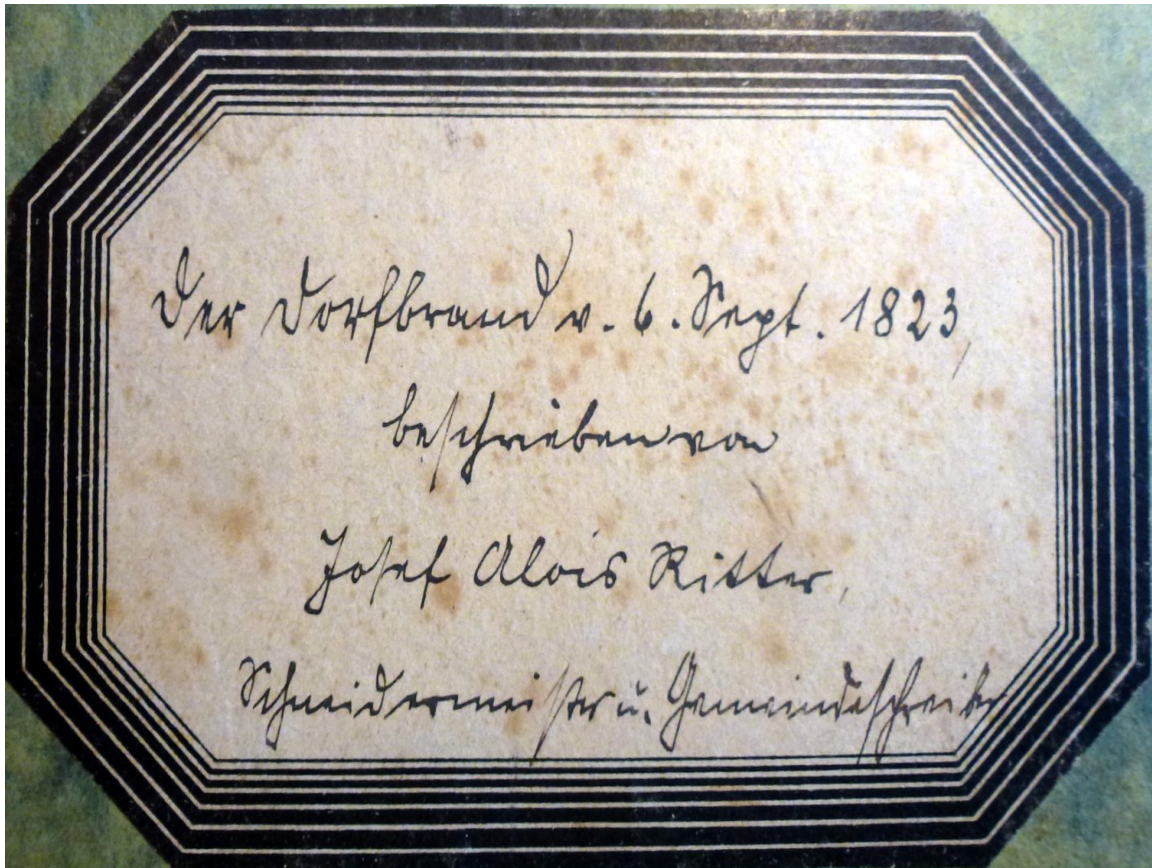 Der Dorfbrand v. 6. Sept. 1823,
beschrieben von
Josef Alois Ritter,
Schneidermeister u. Gemeindeschreiber